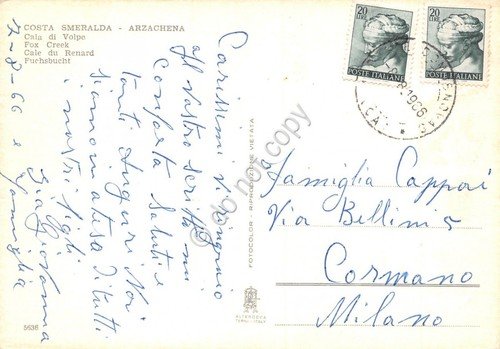 COSTA SMERALDA - ARZACHENA
Cala di Volpe
Fox Creek
Cale du Renard
Fuchsbucht
7-8-66
Carissimi vi ringrazio
il vostro scritto mi
conforta Saluti e
tanti Auguri Noi
siamo in attesa di tutti
i nostri figli
Zia Giovanna
e famiglia
20
LIRE
POSTE ITALIANE
20
LIRE
POSTE ITALIANE
1966
Famiglia Cappai
Via Bellini 5
Cormano
Milano
FOTOCOLOR RIPRODUZIONE VIETATA
ALTEROCCA
TERNI - ITALY
5636
do not copy